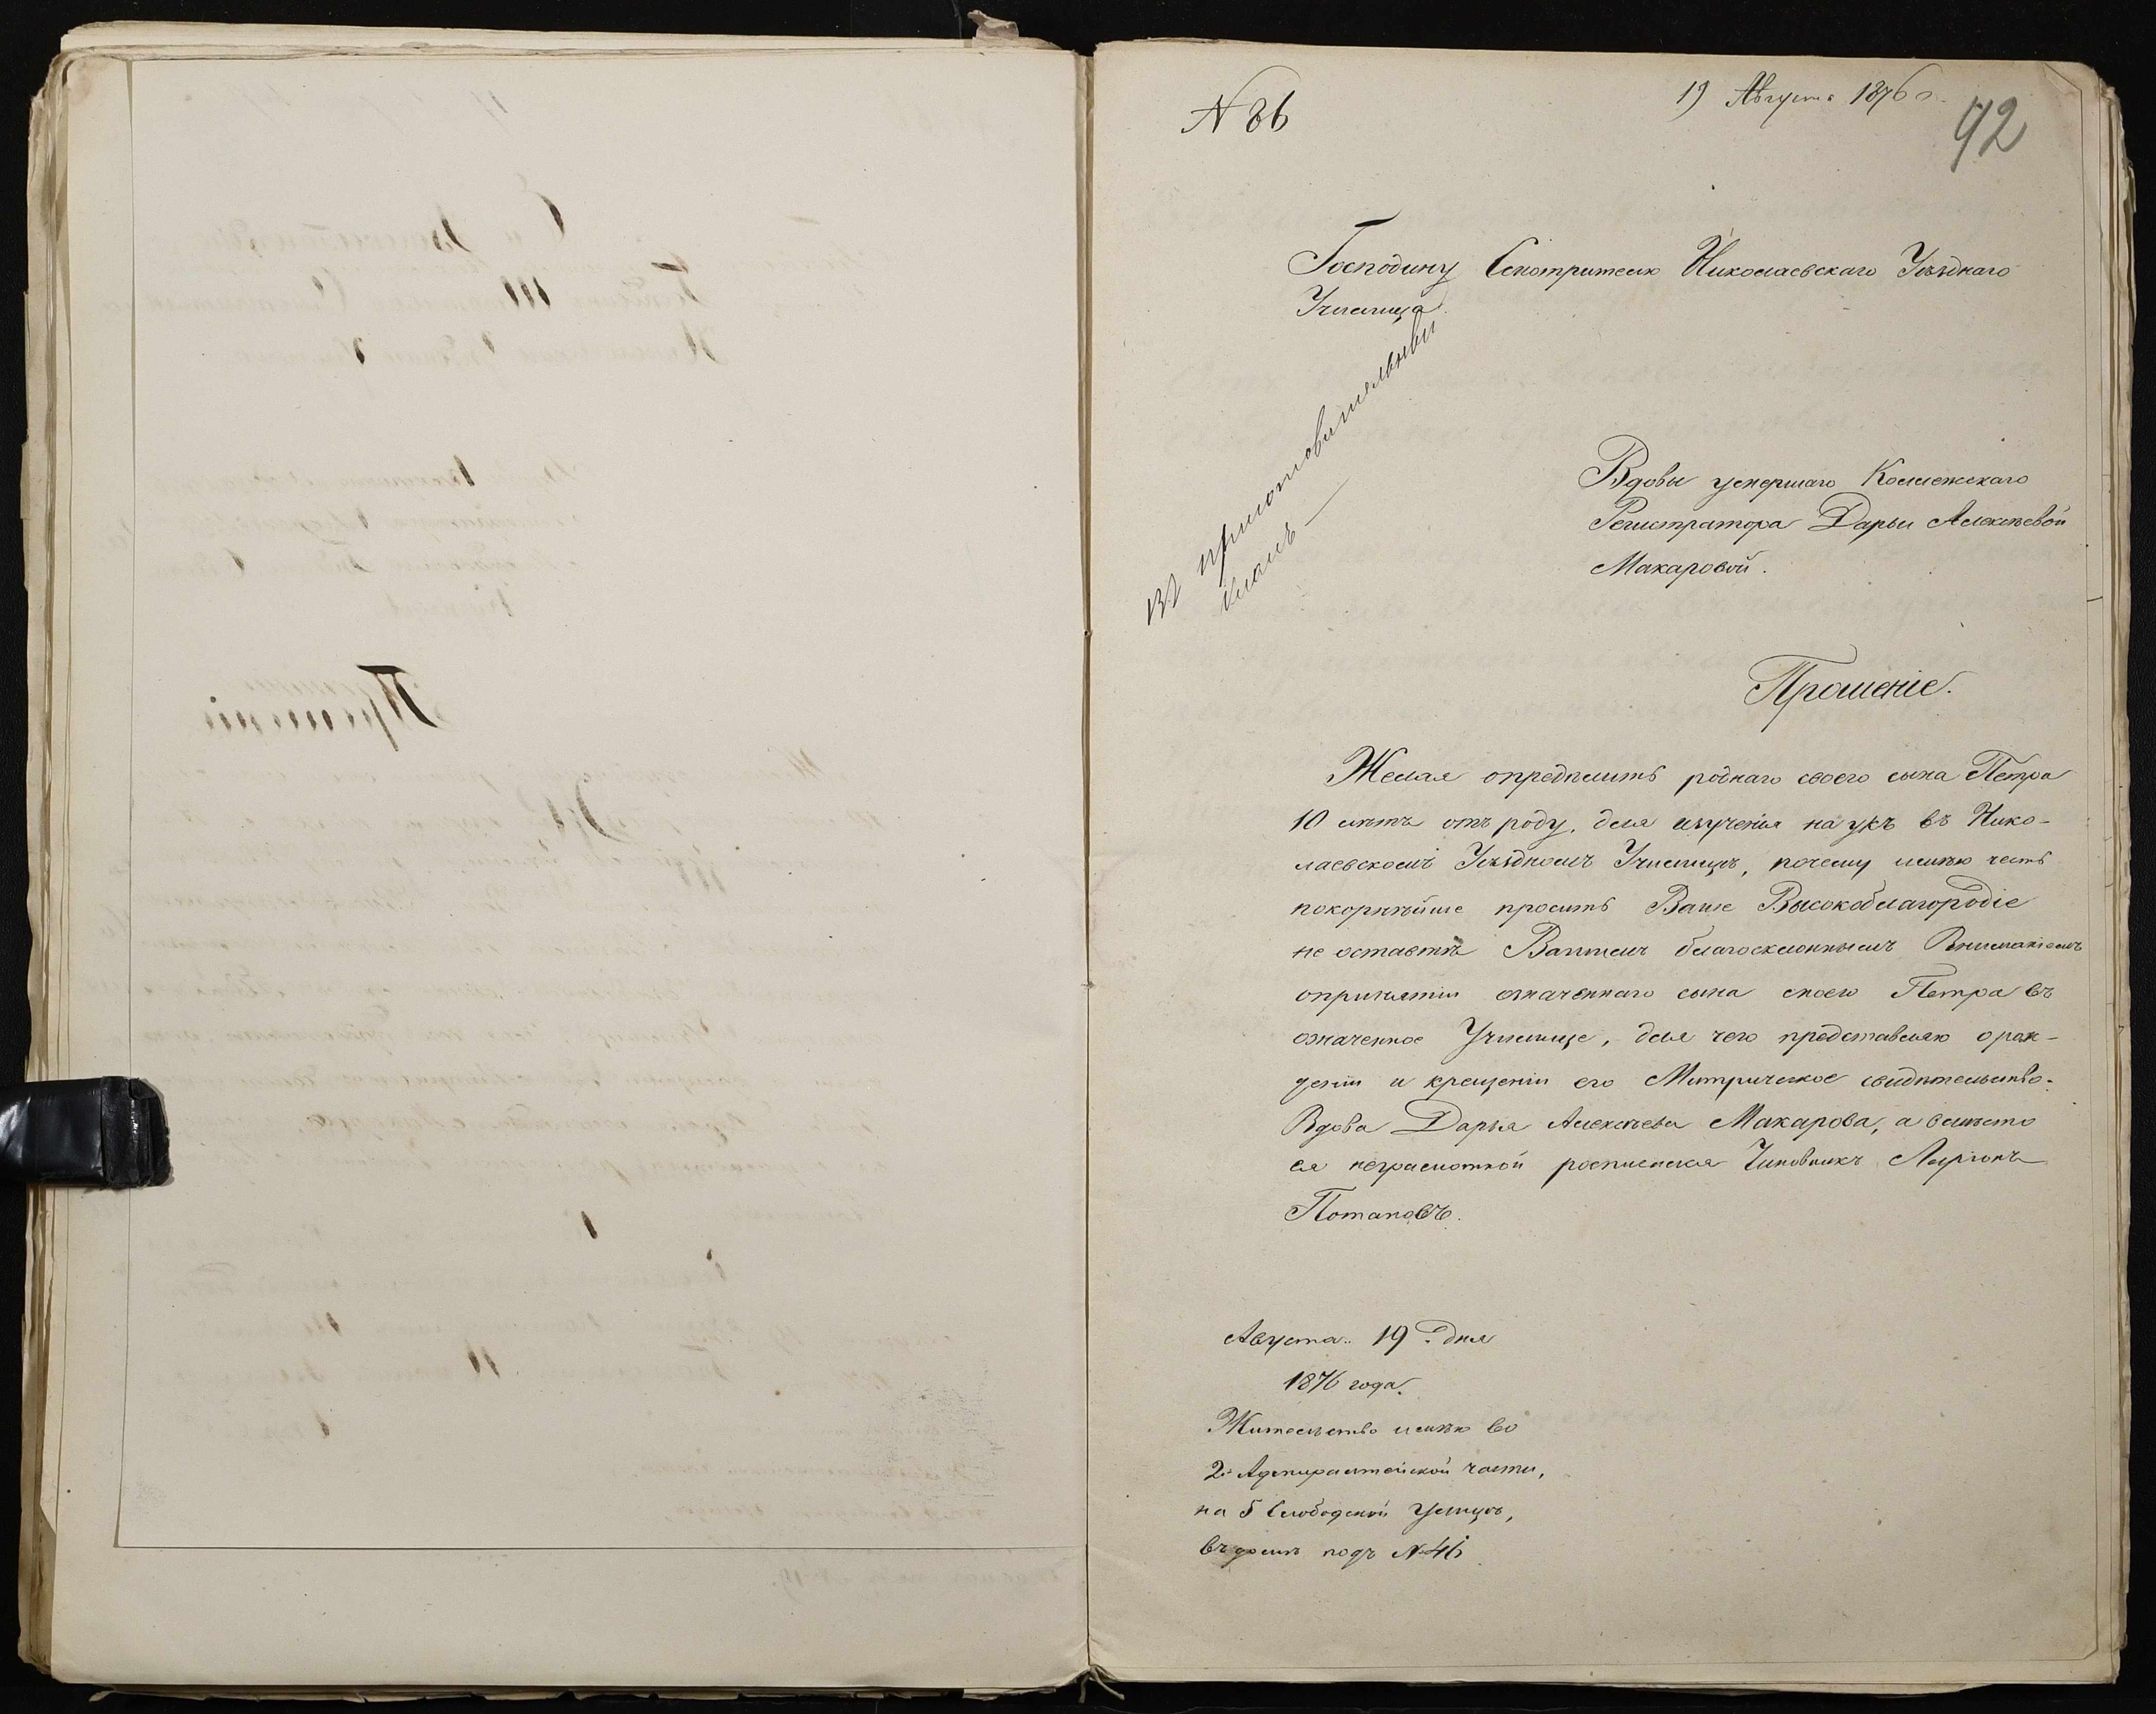 № 86
19 Августа 1876 г.
92
Господину Смотрителю Николаевскаго Уѣзднаго
Училища.
въ приготовительный
классъ —
Вдовы умершаго Коллежскаго
Регистратора Дарьи Алексѣевой
Макаровой.
Прошеніе.
Желая опредѣлить роднаго своего сына Петра
10 лѣтъ отъ роду, для изученія наукъ въ Нико-
лаевскомъ Уѣздномъ Училищѣ, почему имѣю честь
покорнѣйше просить Ваше Высокоблагородіе
не оставить Вашимъ благосклоннымъ Вниманіемъ
опринятіи означеннаго сына моего Петра въ
означенное Училище, для чего представляю о рож-
деніи и крещеніи его Митрическое свидѣтельство.
Вдова Дарья Алексѣева Макарова, а вмѣсто
ея неграмотной росписался Чиновникъ Ларіонъ
Потаповъ.
Августа 19 дня
1876 года.
Жительство имѣю во
2й Адмиралтейской части,
на 5 Слободской Улицѣ,
въ домѣ подъ № 46